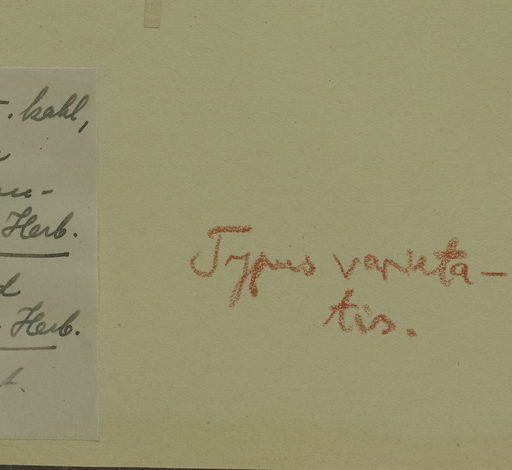 kahl,
Herb.
Herb.
Typus varieta-
tis.